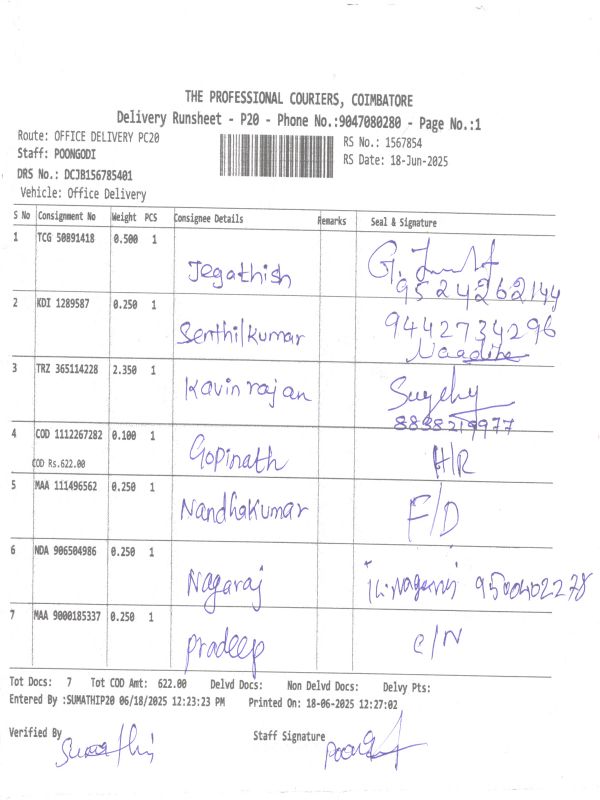 THE PROFESSIONAL COURIERS, COIMBATORE
Delivery Runsheet - P20 - Phone No.:9047080280 - Page No.:1
Route: OFFICE DELIVERY PC20
RS No.: 1567854
Staff: POONGODI
RS Date: 18-Jun-2025
DRS No.: DCJB156785401
Vehicle: Office Delivery
S No Consignment No Weight PCS Consignee Details Remarks Seal & Signature
1 TCG 50891418 0.500 1
Jegathish
9524262144
2 KDI 1289587 0.250 1
Senthilkumar
9442734296
3 TRZ 365114228 2.350 1
Kavin rajan
8838219977
4 COD 1112267282 0.100 1
COD Rs.622.00
Gopinath H/R
5 MAA 111496562 0.250 1
Nandhakumar F/D
6 NDA 906504986 0.250 1
Nagaraj
9500402278
7 MAA 9000185337 0.250 1
Pradeep C/N
Tot Docs: 7 Tot COD Amt: 622.00 Delvd Docs: Non Delvd Docs: Delvy Pts:
Entered By :SUMATHIP20 06/18/2025 12:23:23 PM Printed On: 18-06-2025 12:27:02
Verified By Staff Signature